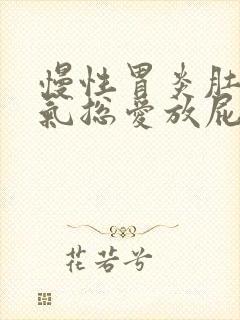 慢性胃炎肚
氣總愛放屁
花若兮